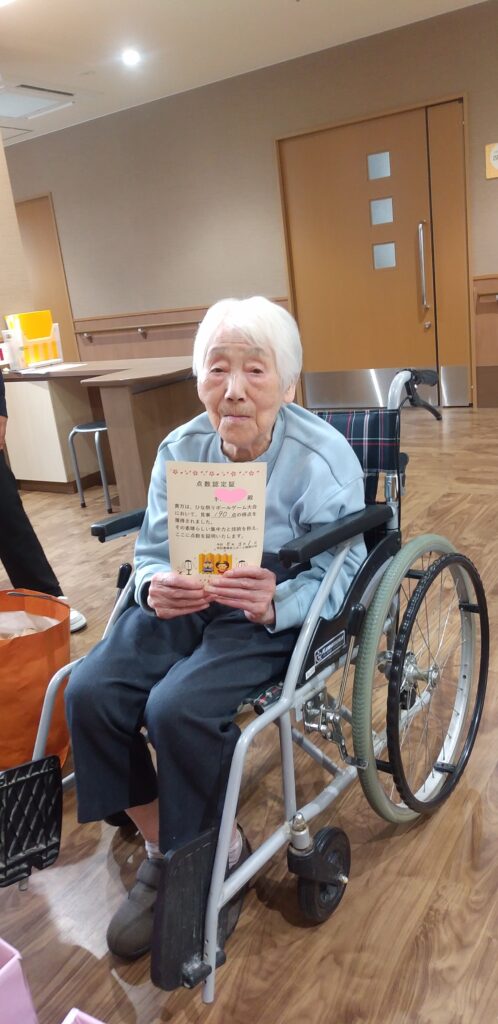 点数認定証
殿
貴方は、ひな祭りボールゲーム大会
において、見事 190 点の得点を
獲得されました。
その素晴らしい集中力と技術を称え、
ここに点数を証明いたします。